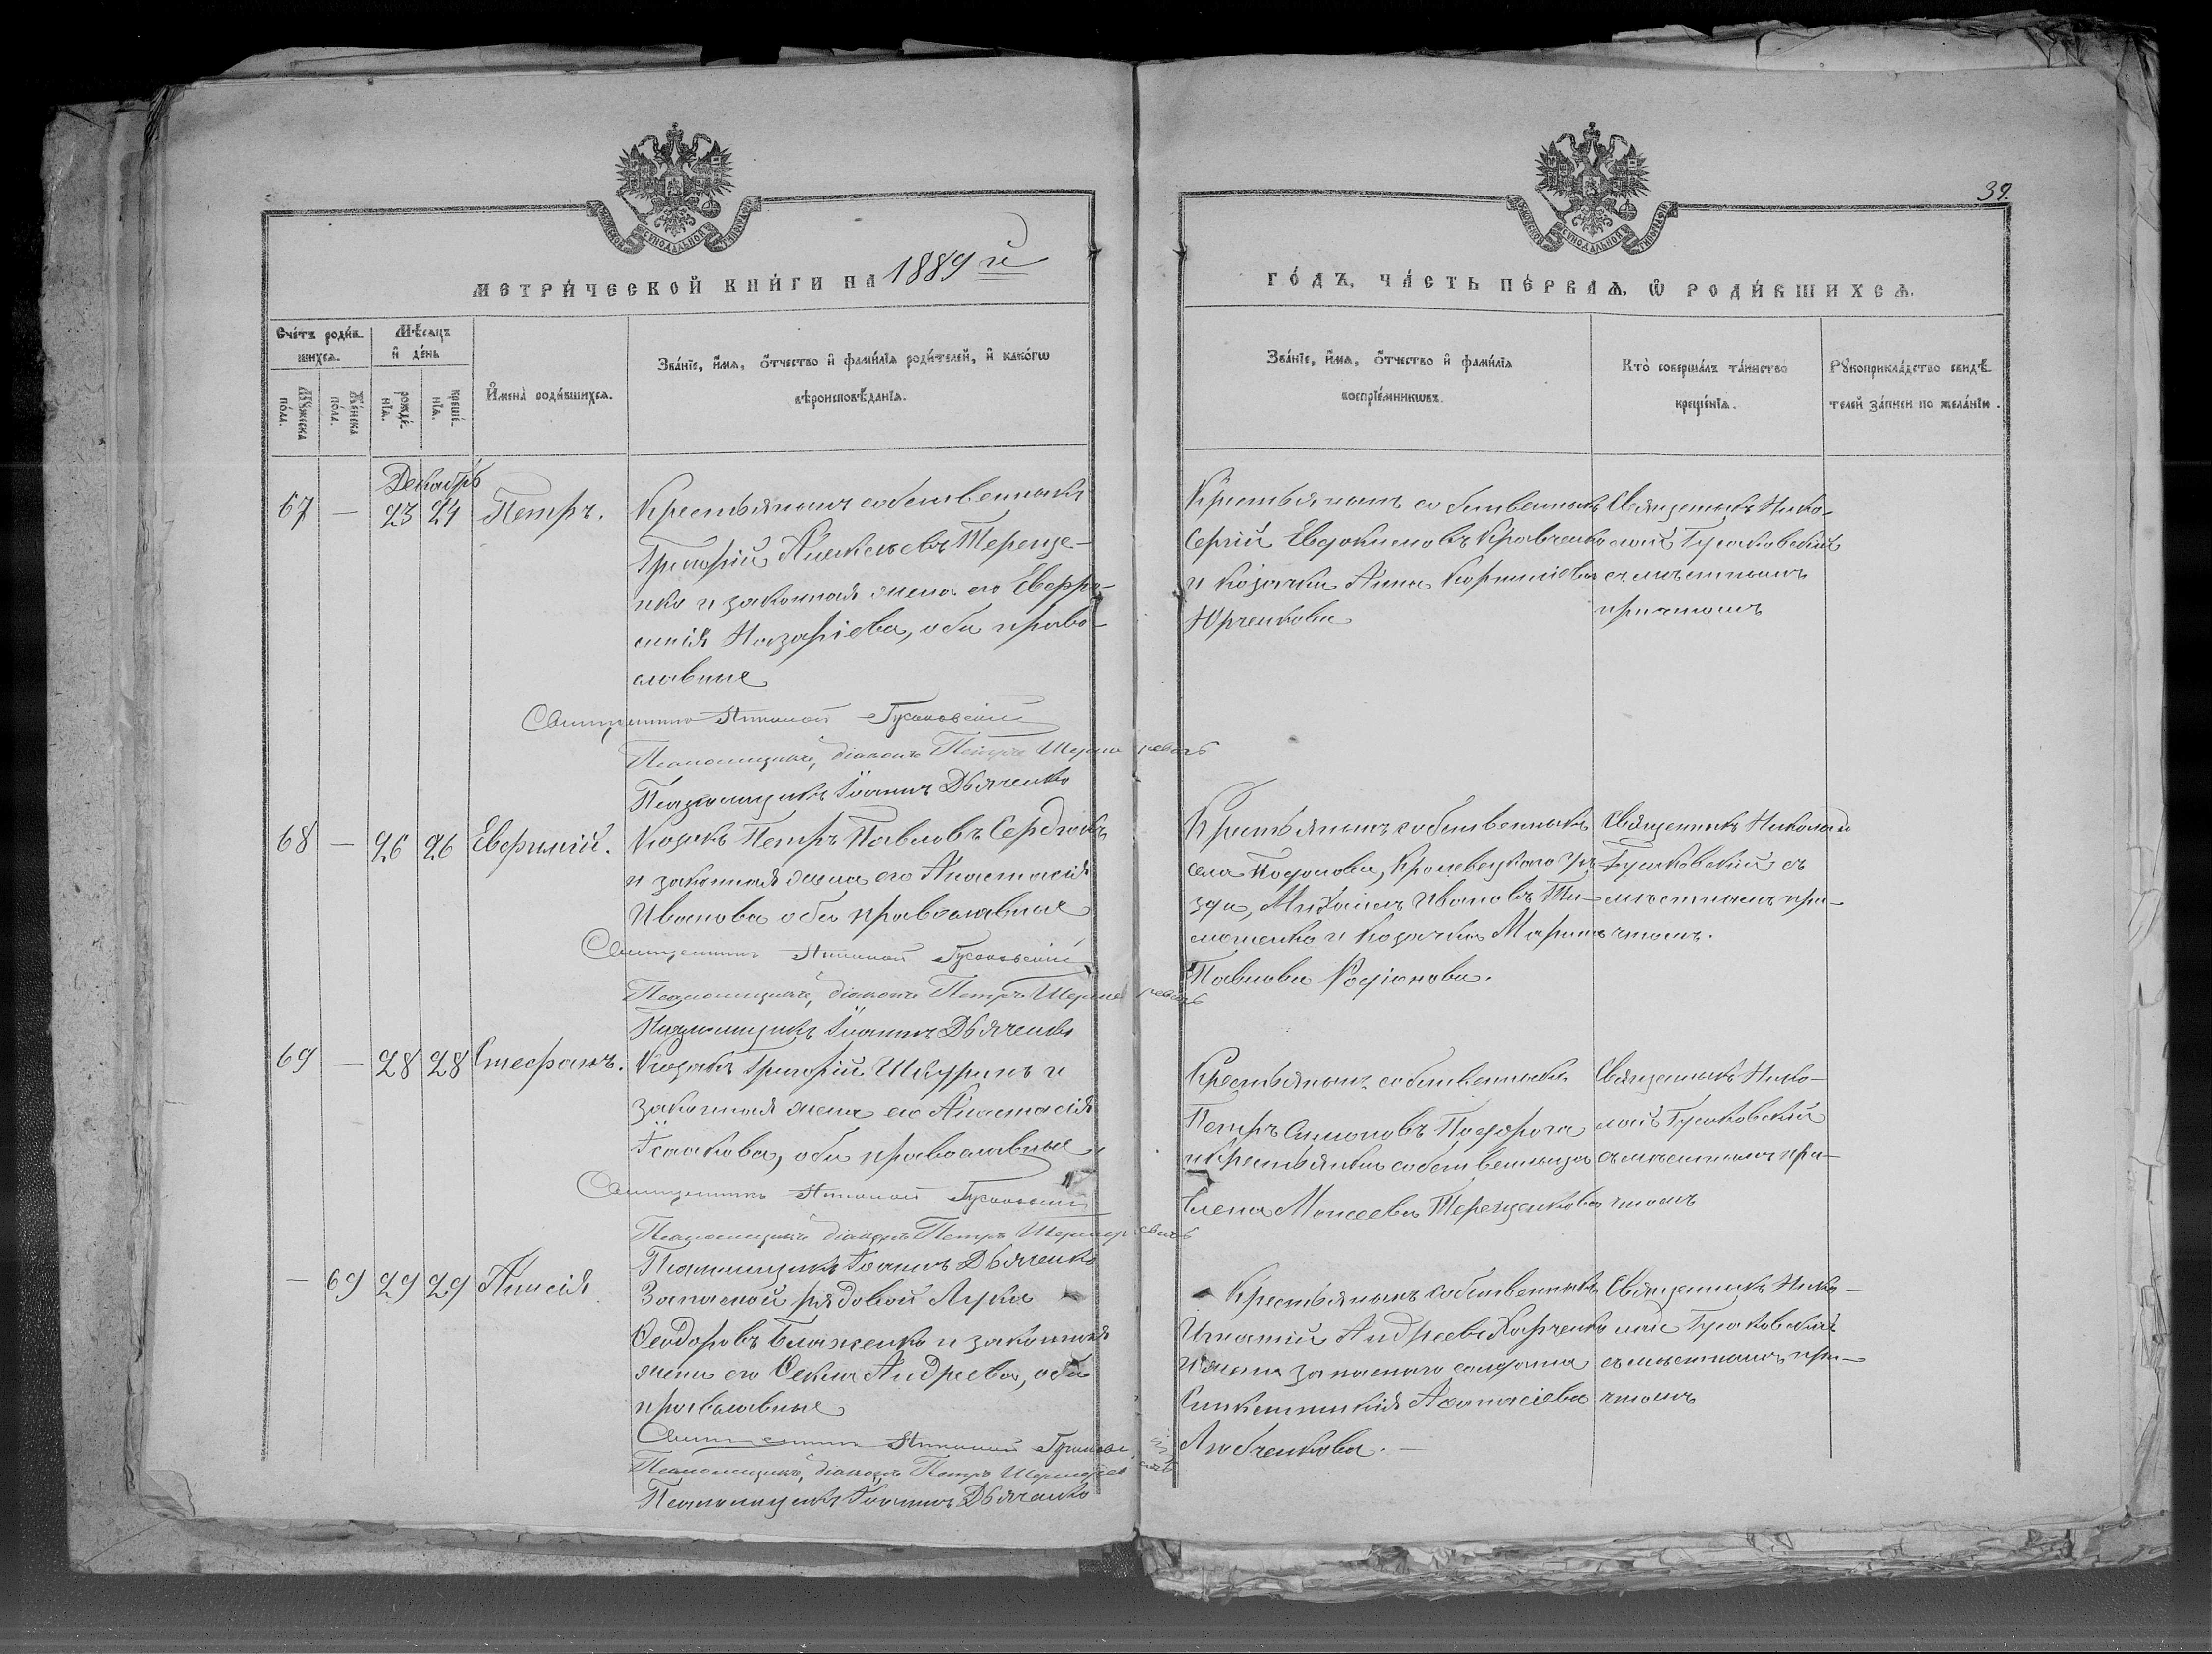 39.
МЕТРИ́ЧЕСКОЙ КНИ́ГИ НА 1889 й
ГО́ДЪ, ЧА́СТЬ ПЕ́РВАѦ, Ѿ РОДИ́ВШИХСѦ.
Сче́тъ роди́вшихсѧ.
Мꙋ́жеска по́ла.
Же́нска по́ла.
Мѣ́сѧцъ и҆ де́нь
рожде́нїѧ.
креще́нїѧ.
И҆мена̀ роди́вшихсѧ.
Зва́нїе, и҆́мѧ, ѻ҆́тчество и҆ фами́лїѧ роди́телей, и҆ како́гѡ
вѣроисповѣ́данїѧ.
Зва́нїе, и҆́мѧ, ѻ҆́тчество и҆ фами́лїѧ
воспрїе́мникѡвъ.
Кто̀ соверша́лъ та́инство
креще́нїѧ.
Рꙋкоприкла́дство свидѣ́-
телей за́писи по жела́нїю.
Декабрь
67 — 23 24 Петръ.
Крестьянинъ собственникъ
Григорій Алексѣевъ Тереще-
нко и законная жена его Евфро-
синія Назаріева, оба право-
славные
Священникъ Николай Гусаковскій
Псаломщикъ, діаконъ Петръ
Псаломщикъ Іоаннъ Дьяченко
Крестьянинъ собственникъ
Сергій Евдокимовъ Кравченко
и козачка Анна Корниліева
Юрченкова
Священникъ Нико-
лай Гусаковскій
съ мѣстнымъ
причтомъ
68 — 26 26 Евфимій.
Козакъ Петръ Павловъ Сердюкъ
и законная жена его Анастасія
Иванова оба православные
Священникъ Николай Гусаковскій
Псаломщикъ, діаконъ Петръ
Псаломщикъ Іоаннъ Дьяченко
Крестьянинъ собственникъ
села Подолова, Кролевецкого уѣ-
зда, Михаилъ Ивановъ Ти-
мошенко и козачка Марина
Павлова Родіонова.
Священникъ Николай
Гусаковскій съ
мѣстнымъ при-
чтомъ.
69 — 28 28 Стефанъ.
Козакъ Григорій Шкуринъ и
законная жена его Анастасія
Исаакова, оба православные
Священникъ Николай Гусаковскій
Псаломщикъ діаконъ Петръ
Псаломщикъ Іоаннъ Дьяченко
Крестьянинъ собственникъ
Петръ Симоновъ Подорога
и крестьянка собственница
Елена Моисеева Терещенкова
Священникъ Нико-
лай Гусаковскій
съ мѣстнымъ при-
чтомъ
— 69 29 29 Анисія
Запасной рядовой Лука
Ѳеодоровъ Блаженко и законная
жена его Ѳекла Андреева, оба
православные
Священникъ Николай Гусаковскій
Псаломщикъ, діаконъ Петръ
Псаломщикъ Іоаннъ Дьяченко
Крестьянинъ собственникъ
Игнатій Андреевъ Харченко
и жена запасного солдата
Синклитикія Аѳанасіева
Любченкова. —
Священникъ Нико-
лай Гусаковскій
съ мѣстнымъ при-
чтомъ